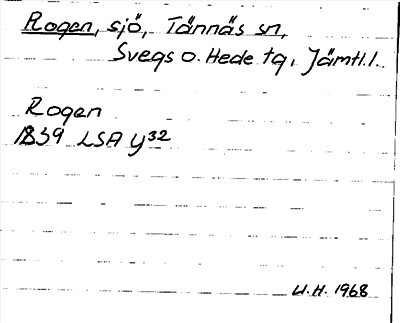 Rogen, sjö, Tännäs sn,
Svegs o. Hede tg, Jämtl.l.
Rogen
1839 LSA Y32
W.H. 1968